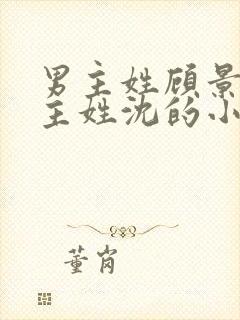 男主姓顾景
主姓沈的小
董岗